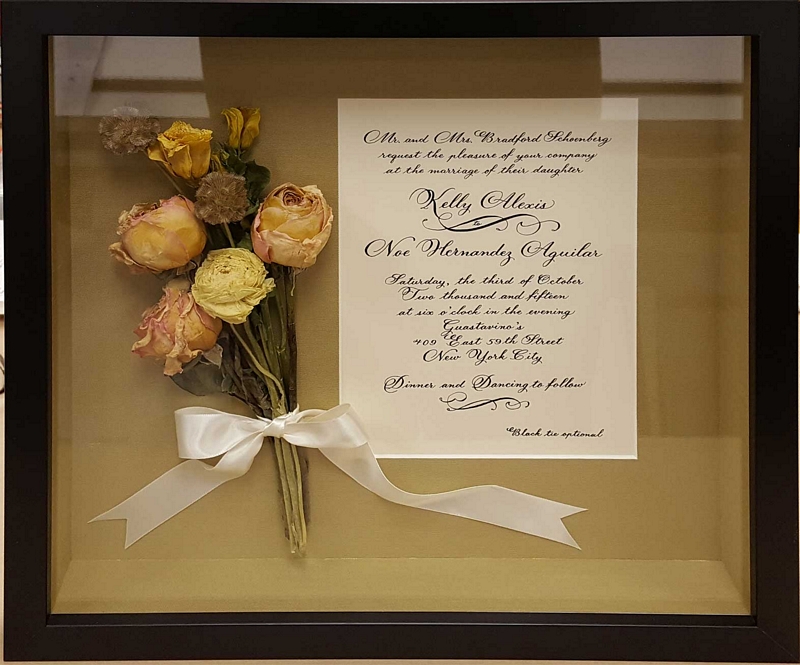 Mr. and Mrs. Bradford Schoenberg
request the pleasure of your company
at the marriage of their daughter
Kelly Alexis
to
Noé Hernandez Aguilar
Saturday, the third of October
Two thousand and fifteen
at six o'clock in the evening
Guastavino's
409 East 59th Street
New York City
Dinner and Dancing to follow
Black tie optional